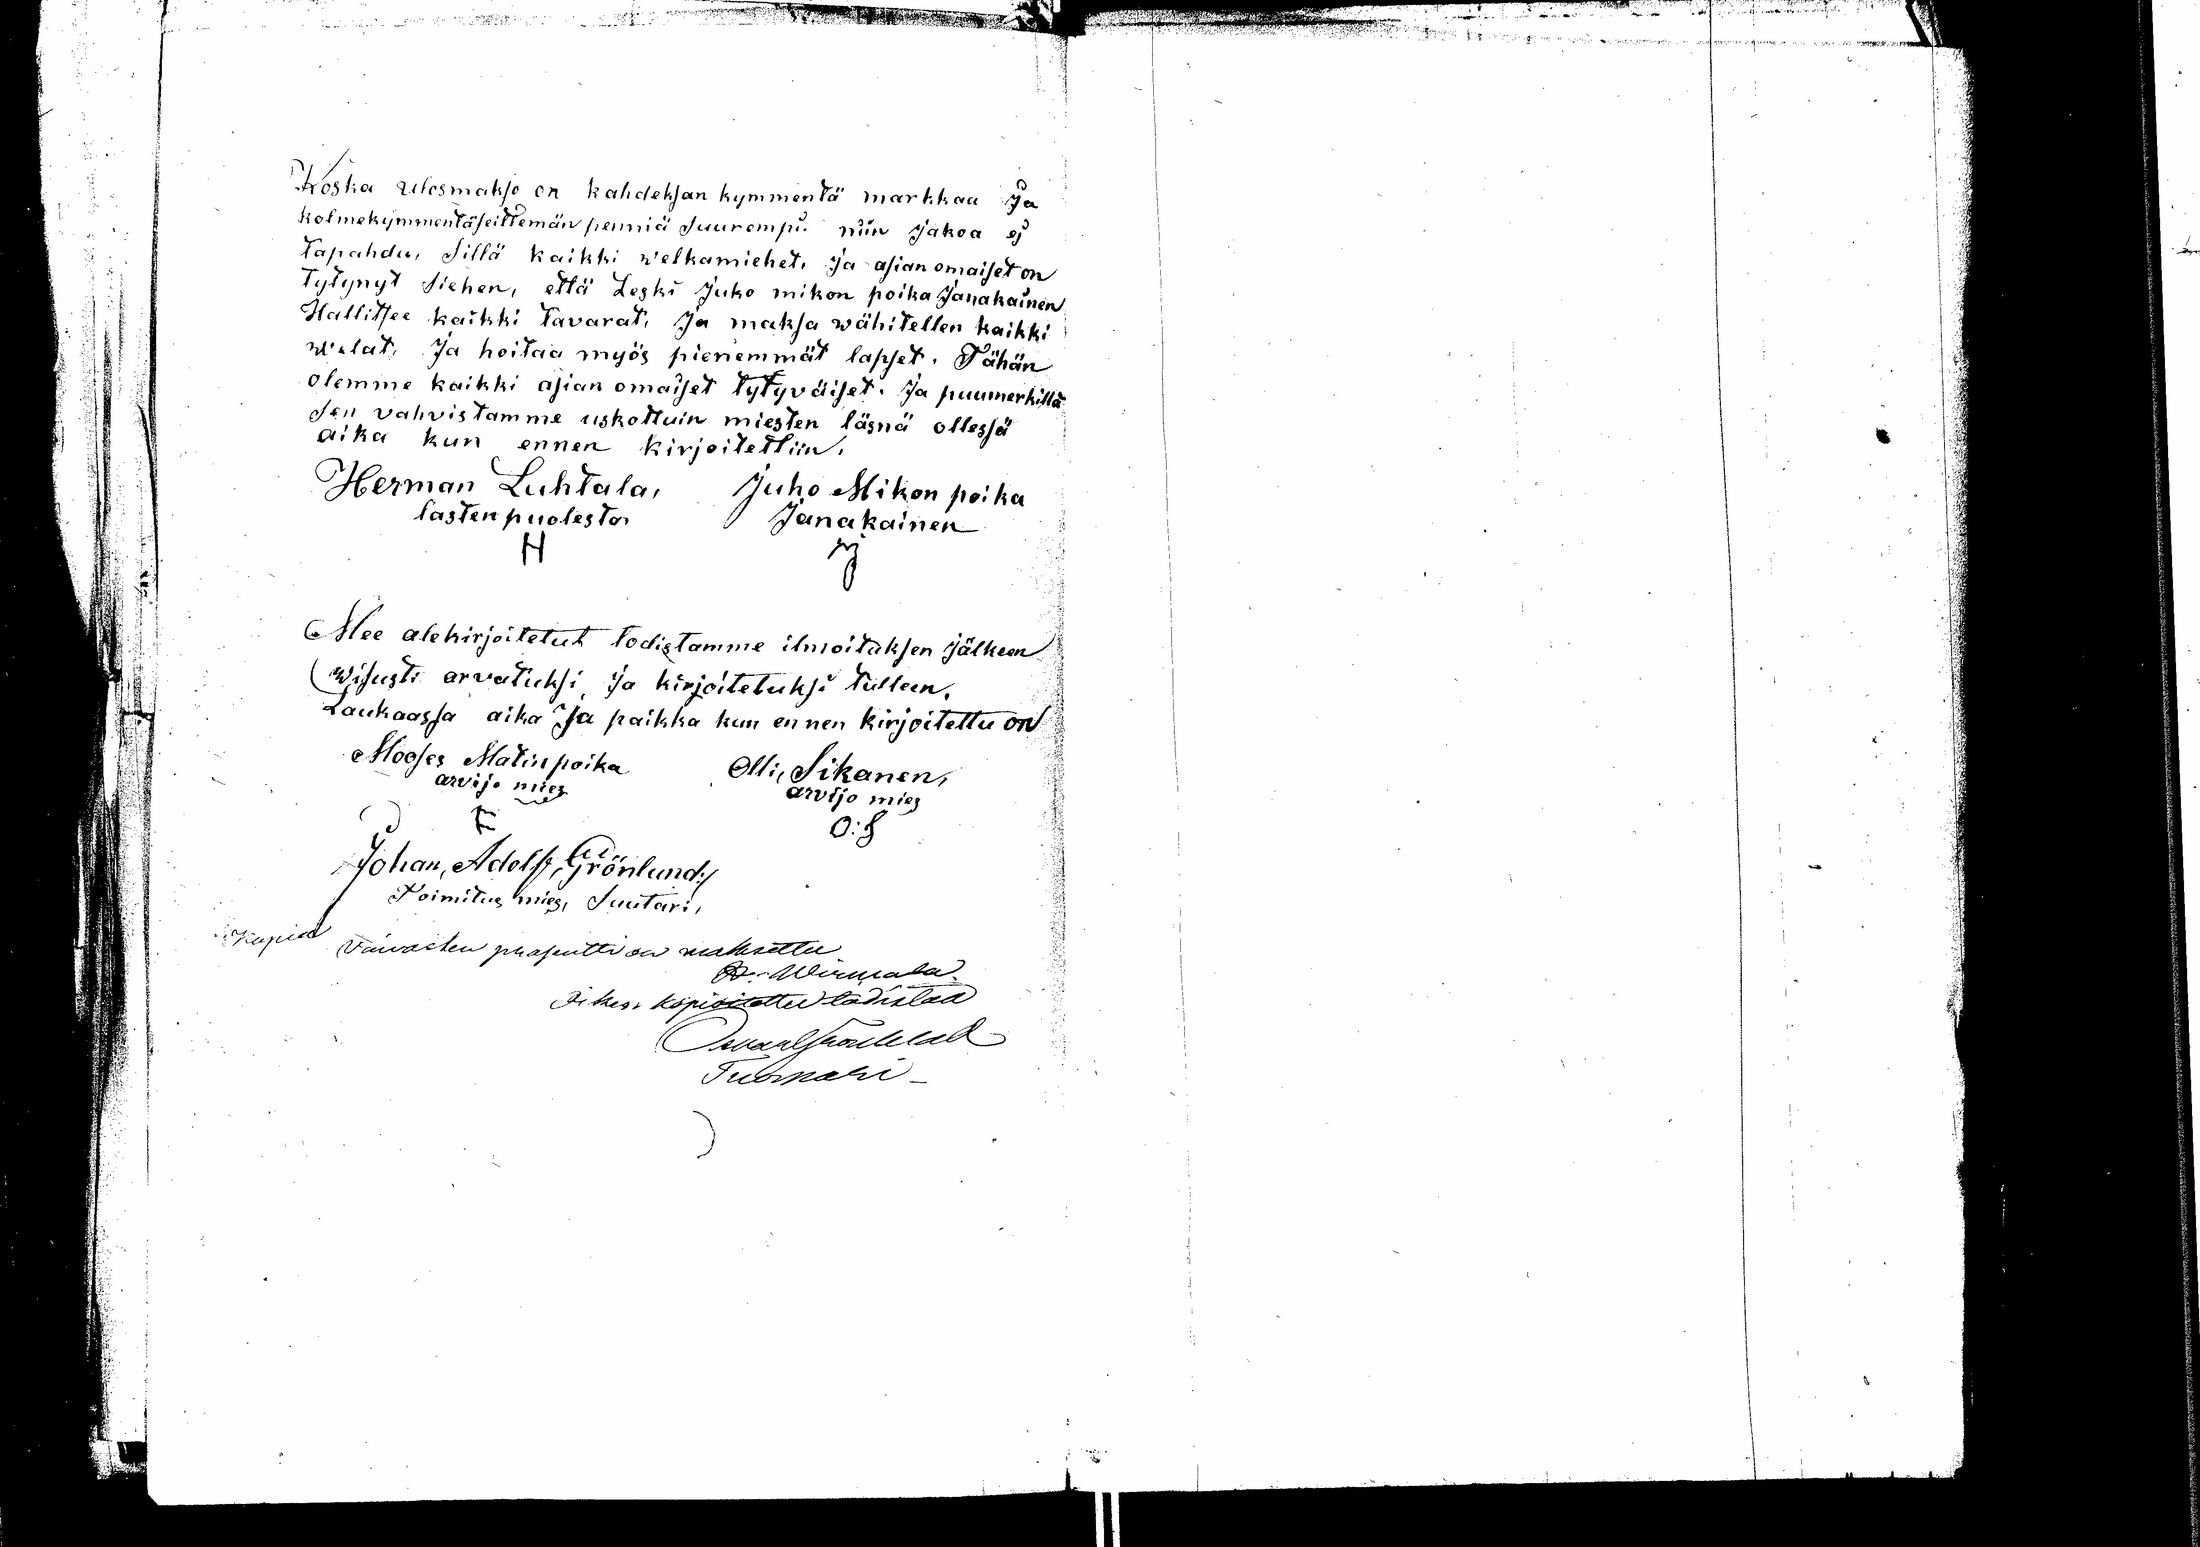 Koska ulosmakso on kahdeksan kymmentä markkaa Ja
kolmekymmentäseittemän penniä suurempi. niin Jakoa ej
tapahdu, Sillä kaikki welkamiehet, Ja asian omaiset on
tytynyt siehen, että Leski Juho mikon poika Janakainen
Hallitsee kaikki tavarat, Ja maksa wähitellen kaikki
welat, Ja hoitaa myös pienemmät lapset. Tähän
olemme kaikki asian omaiset tytyväiset. Ja puumerkillä
sen vahvistamme uskottuin miesten läsnä ollessa
aika kun ennen kirjoitettiin,
Herman Luhtala, Juho Mikon poika
lasten puolesta Janakainen
H J
Mee alekirjoitetut todistamme ilmoituksen Jälkeen
Wisusti arvatuksi, Ja kirjoitetuksi tulleen,
Laukaassa aika Ja paikka kun ennen kirjoitettu on
Mooses Matinpoika Olli, Sikanen,
arvijo mies arvijo mies
O:S
Johan, Adolf, Grönlund:/
Toimitus mies, Suutari,
Kopia
Vaivasten prosentti on maksettu
Wirmala.
Oikein kopioitettu todistaa
Tuomari